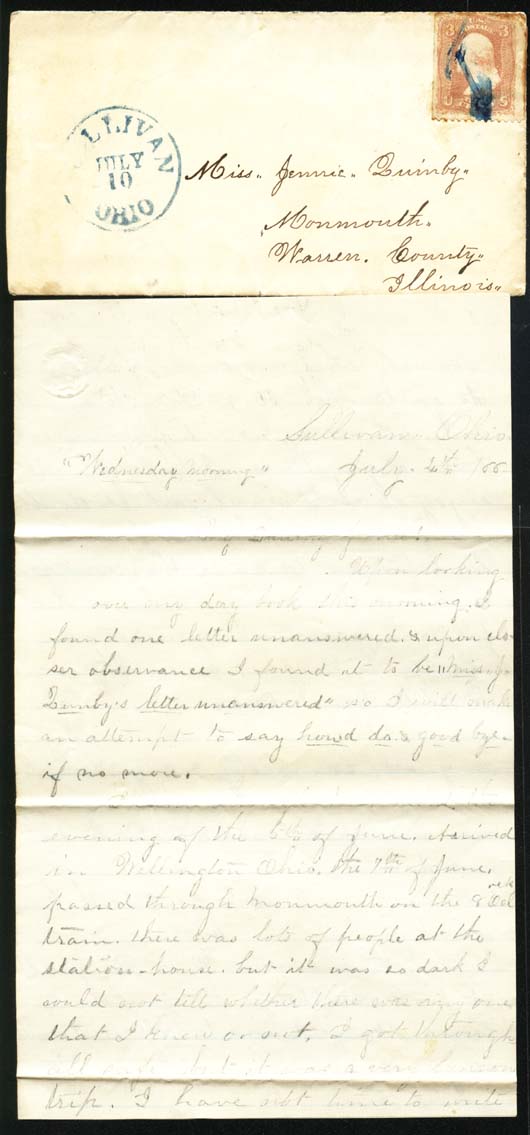 3 3
U S
SULLIVAN
JULY
10
OHIO
Miss. Jennie. Quinby.
Monmouth.
Warren. County.
Illinois.
Sullivan. Ohio.
"Wednesday Morning" July. 4th /66
Friend.
Upon looking
over my day book this morning. I
found one letter unanswered. & upon clo-
ser observance I found it to be "Miss J.
Quinby's letter unanswered" so I will make
an attempt to say howd do. & good bye.
if no more.
evening of the 5th of June. Arrived
in Wellington Ohio. the 7th of June.
passed through Monmouth on the 8
train. there was lots of people at the
station-house. but it was so dark I
could not tell whether there was any one
that I knew or not. I got through
all safe but it was a very
trip. I have not time to write